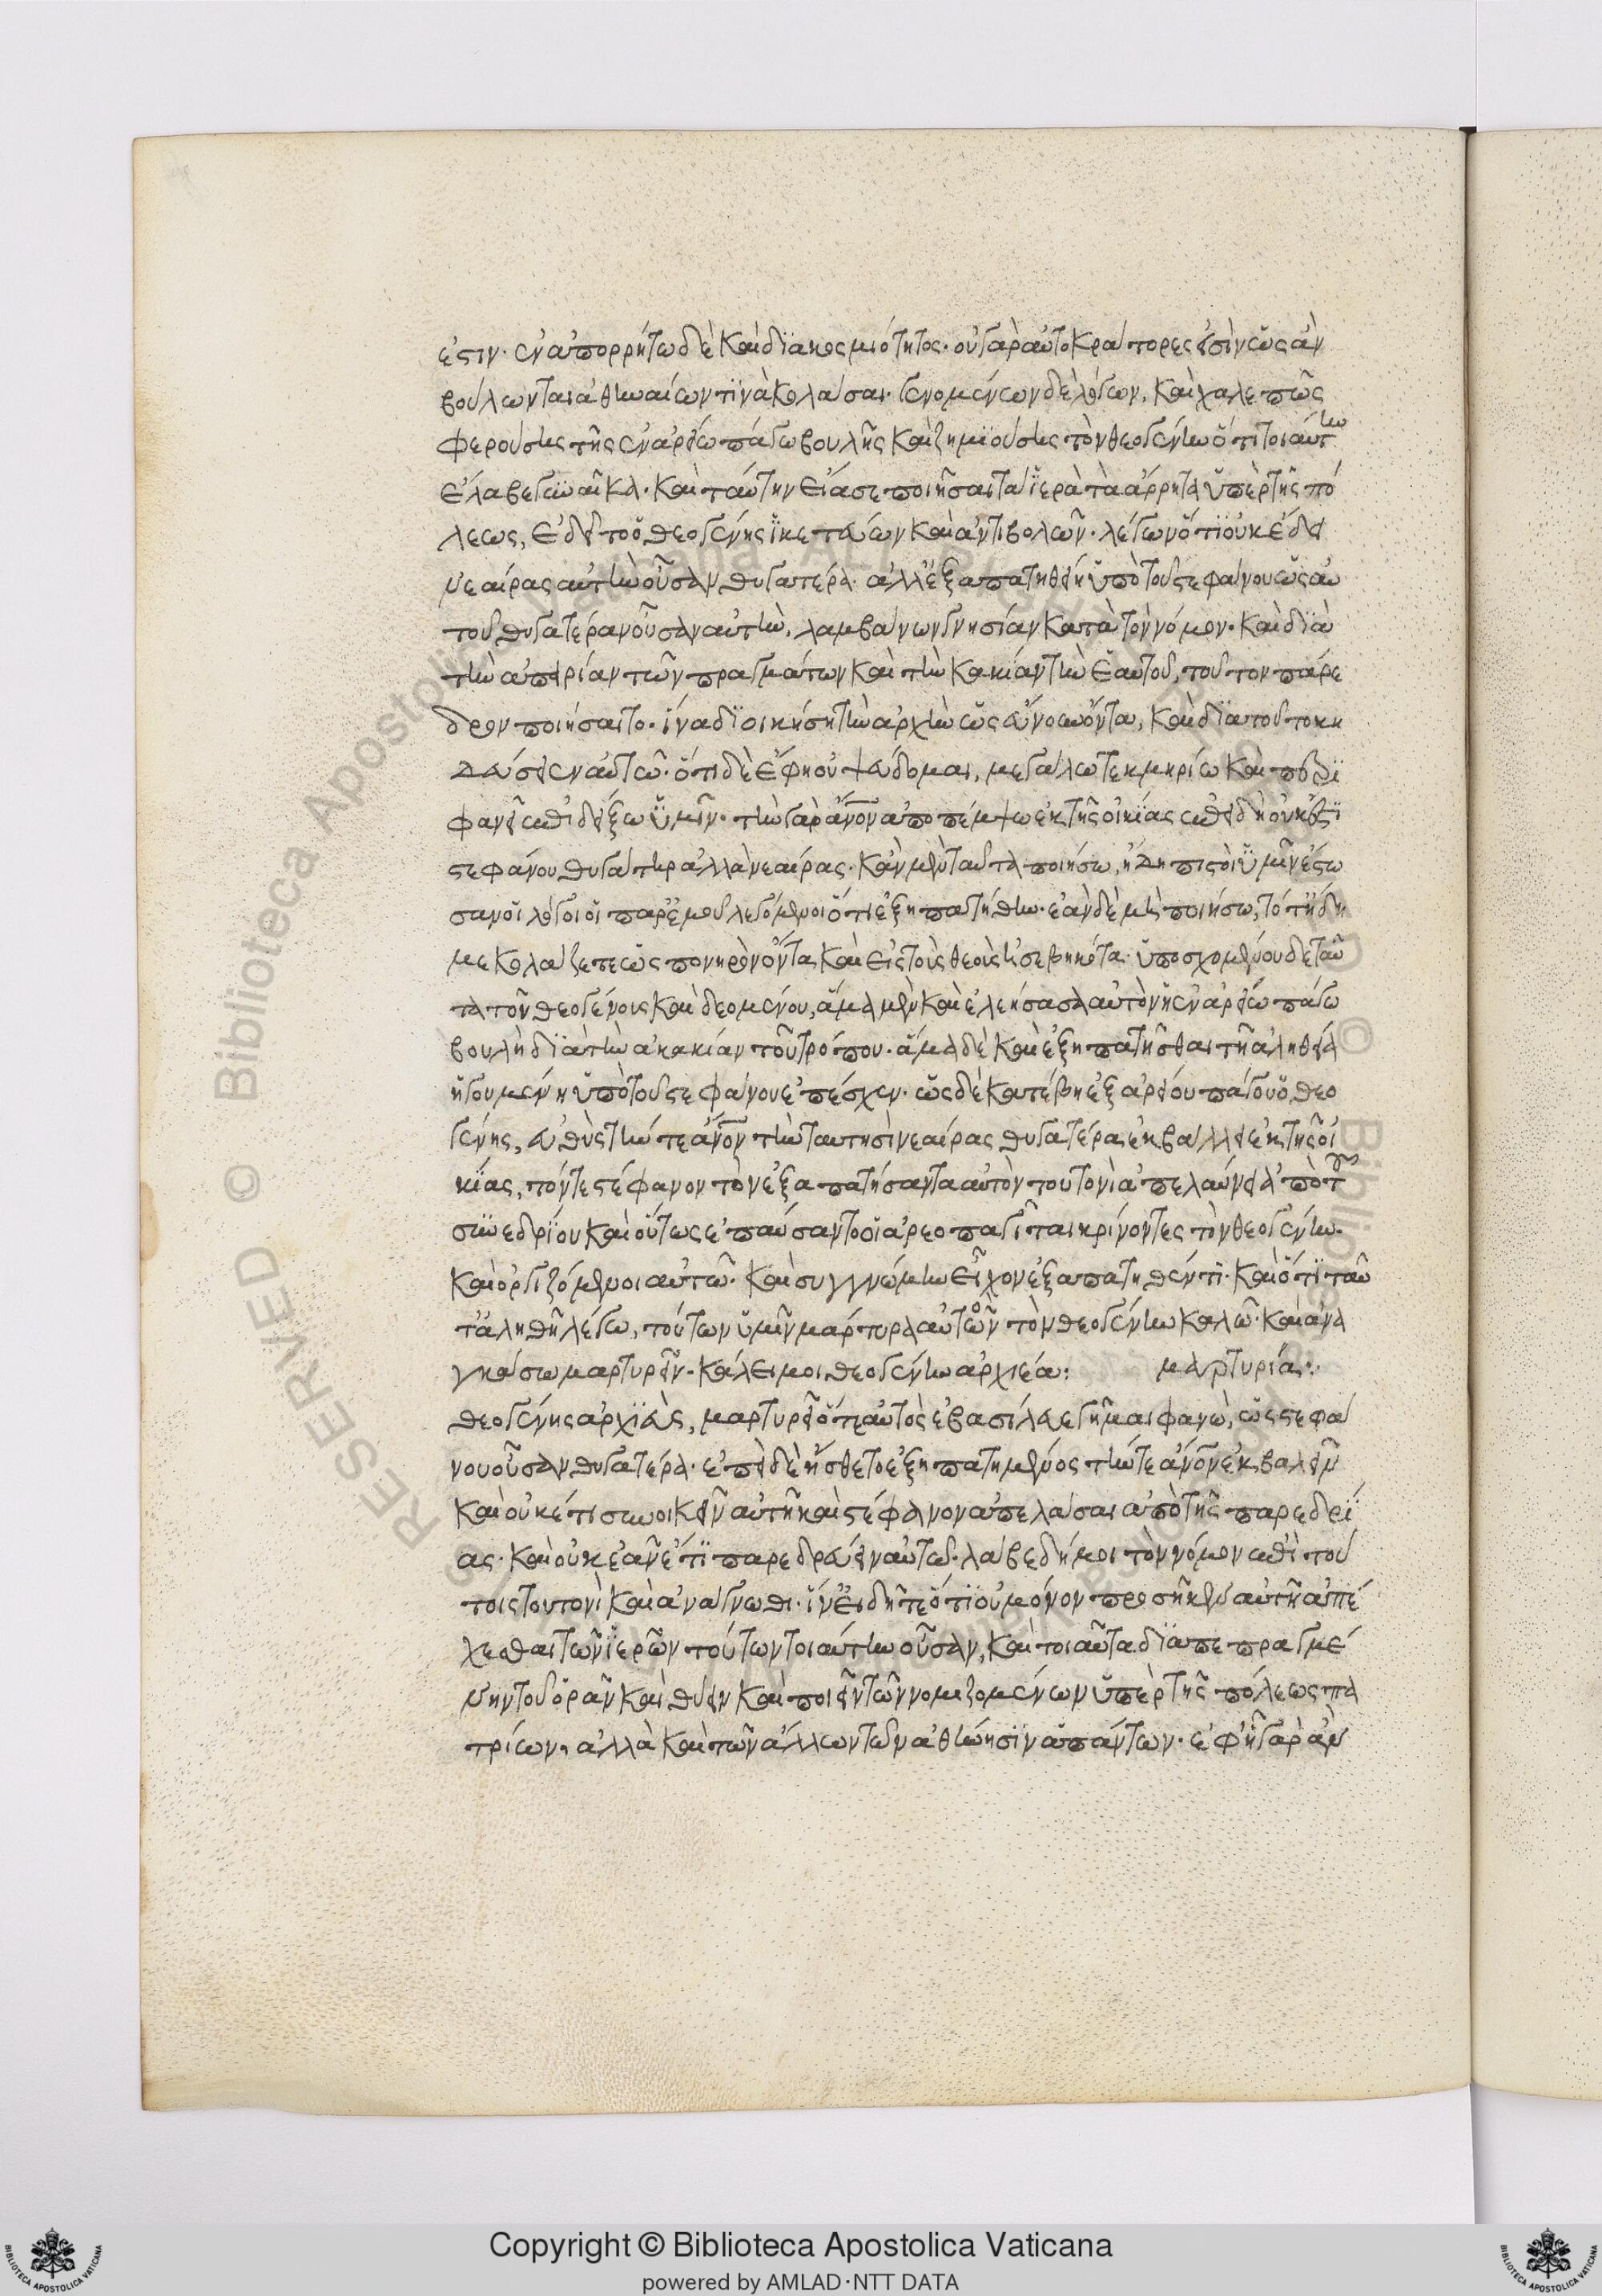 ἐστιν· ἐν ἀπορρήτω δὲ καὶ διακοσμιότητος· οὐ γὰρ αὐτοκράτορες εἰσὶν ὡς ἂν
βούλωνται ἀθηναίων τινὰ κολάσαι· γενομένων δὲ λόγων, καὶ χαλεπῶς
φερούσης τῆς ἐν ἀρείω πάγω βουλῆς καὶ ζημιούσης τὸν θεογένην ὅτι τοιαύτην
ἔλαβε γυναῖκα· καὶ ταύτην εἴασε ποιῆσαι τὰ ἱερὰ τὰ ἄρρητα ὑπὲρ τῆς πό
λεως, ἐδεῖτο ὁ θεογένης ἱκετεύων καὶ ἀντιβολῶν· λέγων ὅτι οὐκ ἔδει
νεαίρας αὐτὴν οὖσαν θυγατέρα· ἀλλ' ἐξαπατηθείη ὑπὸ τοῦ στεφάνου ὡς αὐ
τοῦ θυγατέραν οὖσαν αὐτὴν, λαμβάνων γνησίαν κατὰ τὸν νόμον· καὶ διὰ
τὴν ἀπειρίαν τῶν πραγμάτων καὶ τὴν κακίαν τὴν ἑαυτοῦ, τοῦτον πάρε
δρον ποιήσαιτο· ἵνα διοικήση τὴν ἀρχὴν ὡς εὔνουν ὄντα, καὶ διὰ τοῦτο κη
δεύσειεν αὐτῶ· ὅτι δὲ ἔφη οὐ ψεύδομαι, μεγάλω τεκμηρίω καὶ περι
φανεῖ ἐπιδείξω ὑμῖν· τὴν γὰρ ἄνον ἀποπέμψω ἐκ τῆς οἰκίας ἐπειδὴ οὐκ ἔστι
στεφάνου θυγάτηρ ἀλλὰ νεαίρας· κἂν μὲν ταῦτα ποιήσω, ἤδη πιστοὶ ὑμῖν ἔστω
σαν οἱ λόγοι οἱ παρ' ἐμοῦ λεγόμενοι ὅτι ἐξηπατήθην· ἐὰν δὲ μὴ ποιήσω, τότ' ἤδη
με κολάζετε ὡς πονηρὸν ὄντα καὶ εἰς τοὺς θεοὺς ἠσεβηκότα· ὑποσχομένου δὲ ταῦ
τα τοῦ θεογένους καὶ δεομένου, ἅμα μὲν καὶ ἐλεήσασα αὐτὸν ἡ ἐν ἀρείω πάγω
βουλὴ διὰ τὴν ἀκακίαν τοῦ τρόπου· ἅμα δὲ καὶ ἐξηπατῆσθαι τῆ ἀληθεία
ἡγουμένη ὑπὸ τοῦ στεφάνου ἐπέσχεν· ὡς δὲ κατέβη ἐξ ἀρείου πάγου ὁ θεο
γένης, εὐθὺς τήν τε ἄνον τὴν ταυτησὶ νεαίρας θυγατέρα ἐκβάλλει ἐκ τῆς οἰ
κίας, τόν τε στέφανον τὸν ἐξαπατήσαντα αὐτὸν τουτονὶ ἀπελαύνει ἀπὸ τοῦ
συνεδρίου καὶ οὕτως ἐπαύσαντο οἱ ἀρεοπαγῖται κρίνοντες τὸν θεογένην·
καὶ ὀργιζόμενοι αὐτῶ· καὶ συγγνώμην εἶχον ἐξαπατηθέντι· καὶ ὅτι ταῦ
τ' ἀληθῆ λέγω, τούτων ὑμῖν μάρτυρα αὐτὸν τὸν θεογένην καλῶ· καὶ ἀνα
γκάσω μαρτυρεῖν· κάλει μοι θεογένην ἀρχιέα: μαρτυρία:·
θεογένης ἀρχιεὺς, μαρτυρεῖ ὅτι αὐτὸς ἐβασίλευε γῆμαι φανὼ, ὡς στεφά
νου οὖσαν θυγατέρα· ἐπεὶ δὲ ἤσθετο ἐξηπατημένος τήν τε ἄνον ἐκβαλεῖν
καὶ οὐκέτι συνοικεῖν αὐτῆ καὶ στέφανον ἀπελάσαι ἀπὸ τῆς παρεδρί
ας· καὶ οὐκ ἐᾶν ἔτι παρεδρεύειν αὐτῶ· λάβε δή μοι τὸν νόμον ἐπὶ τού
τοις τουτονὶ καὶ ἀνάγνωθι· ἵν' εἰδῆτε ὅτι οὐ μόνον προσῆκεν αὐτῆ ἀπέ
χεσθαι τῶν ἱερῶν τούτων τοιαύτην οὖσαν, καὶ τοιαῦτα διαπεπραγμέ
νην τοῦ ὁρᾶν καὶ θύειν καὶ ποιεῖν τῶν νομιζομένων ὑπὲρ τῆς πόλεως πα
τρίων, ἀλλὰ καὶ τῶν ἄλλων τῶν ἀθήνησιν ἁπάντων· ἐφ' ἧ γὰρ ἂν
Copyright © Biblioteca Apostolica Vaticana
powered by AMLAD·NTT DATA